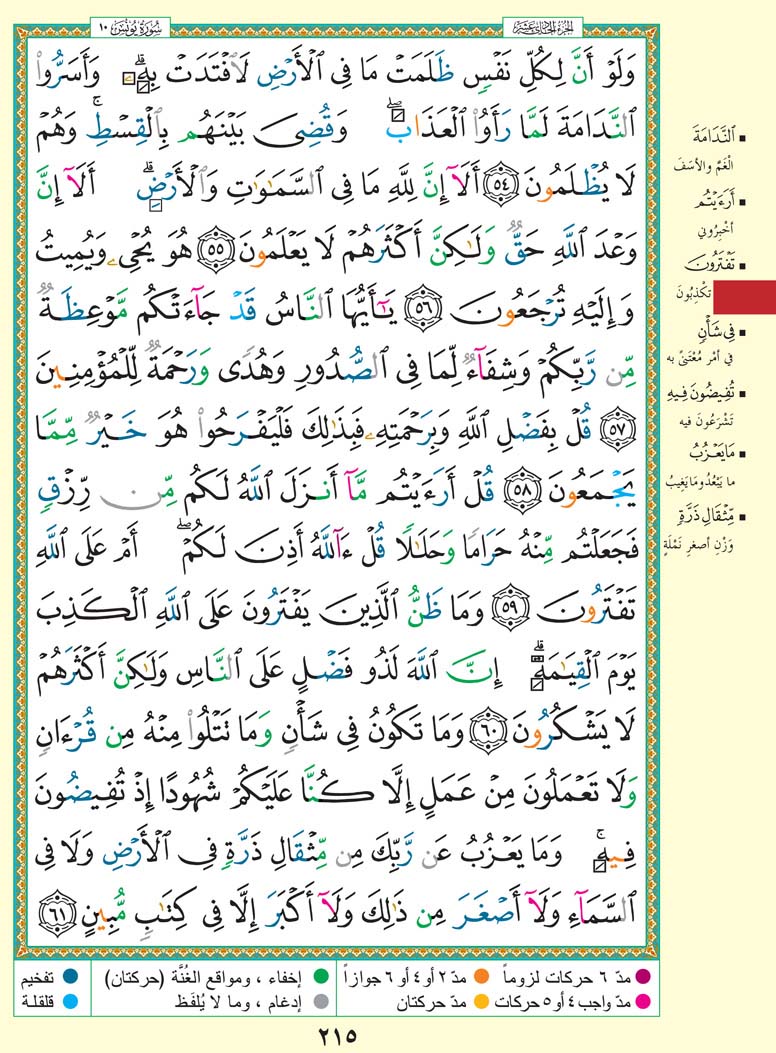 الجزء الحادي عشر
سُورَةُ يُونُسَ ١٠
وَلَوْ أَنَّ لِكُلِّ نَفْسٍ ظَلَمَتْ مَا فِى ٱلْأَرْضِ لَٱفْتَدَتْ بِهِۦ ۗ وَأَسَرُّوا۟
ٱلنَّدَامَةَ لَمَّا رَأَوُا۟ ٱلْعَذَابَ ۖ وَقُضِىَ بَيْنَهُم بِٱلْقِسْطِ ۚ وَهُمْ
لَا يُظْلَمُونَ ٥٤ أَلَآ إِنَّ لِلَّهِ مَا فِى ٱلسَّمَـٰوَٰتِ وَٱلْأَرْضِ ۗ أَلَآ إِنَّ
وَعْدَ ٱللَّهِ حَقٌّ وَلَـٰكِنَّ أَكْثَرَهُمْ لَا يَعْلَمُونَ ٥٥ هُوَ يُحْىِۦ وَيُمِيتُ
وَإِلَيْهِ تُرْجَعُونَ ٥٦ يَـٰٓأَيُّهَا ٱلنَّاسُ قَدْ جَآءَتْكُم مَّوْعِظَةٌ
مِّن رَّبِّكُمْ وَشِفَآءٌ لِّمَا فِى ٱلصُّدُورِ وَهُدًى وَرَحْمَةٌ لِّلْمُؤْمِنِينَ
٥٧ قُلْ بِفَضْلِ ٱللَّهِ وَبِرَحْمَتِهِۦ فَبِذَٰلِكَ فَلْيَفْرَحُوا۟ هُوَ خَيْرٌ مِّمَّا
يَجْمَعُونَ ٥٨ قُلْ أَرَءَيْتُم مَّآ أَنزَلَ ٱللَّهُ لَكُم مِّن رِّزْقٍ
فَجَعَلْتُم مِّنْهُ حَرَامًا وَحَلَـٰلًا قُلْ ءَآللَّهُ أَذِنَ لَكُمْ ۖ أَمْ عَلَى ٱللَّهِ
تَفْتَرُونَ ٥٩ وَمَا ظَنُّ ٱلَّذِينَ يَفْتَرُونَ عَلَى ٱللَّهِ ٱلْكَذِبَ
يَوْمَ ٱلْقِيَـٰمَةِ ۗ إِنَّ ٱللَّهَ لَذُو فَضْلٍ عَلَى ٱلنَّاسِ وَلَـٰكِنَّ أَكْثَرَهُمْ
لَا يَشْكُرُونَ ٦٠ وَمَا تَكُونُ فِى شَأْنٍ وَمَا تَتْلُوا۟ مِنْهُ مِن قُرْءَانٍ
وَلَا تَعْمَلُونَ مِنْ عَمَلٍ إِلَّا كُنَّا عَلَيْكُمْ شُهُودًا إِذْ تُفِيضُونَ
فِيهِ ۚ وَمَا يَعْزُبُ عَن رَّبِّكَ مِن مِّثْقَالِ ذَرَّةٍ فِى ٱلْأَرْضِ وَلَا فِى
ٱلسَّمَآءِ وَلَآ أَصْغَرَ مِن ذَٰلِكَ وَلَآ أَكْبَرَ إِلَّا فِى كِتَـٰبٍ مُّبِينٍ ٦١
▪ ٱلنَّدَامَةَ
الْغَمَّ والأسَفَ
▪ أَرَءَيْتُم
أخْبِرُوني
▪ تَفْتَرُونَ
تكْذِبُونَ
▪ فِى شَأْنٍ
في أمْرٍ مُعْتَنىً به
▪ تُفِيضُونَ فِيهِ
تَشْرَعُونَ فيه
▪ مَا يَعْزُبُ
ما يَبْعُدُ وما يَغِيبُ
▪ مِّثْقَالِ ذَرَّةٍ
وَزْنِ أصغرِ نَمْلَةٍ
مدّ ٦ حركات لزوماً
مدّ ٢ أو ٤ أو ٦ جوازاً
إخفاء ، ومواقع الغُنَّة (حركتان)
تفخيم
مدّ واجب ٤ أو ٥ حركات
مدّ حركتان
إدغام ، وما لا يُلفَظ
قلقلة
٢١٥